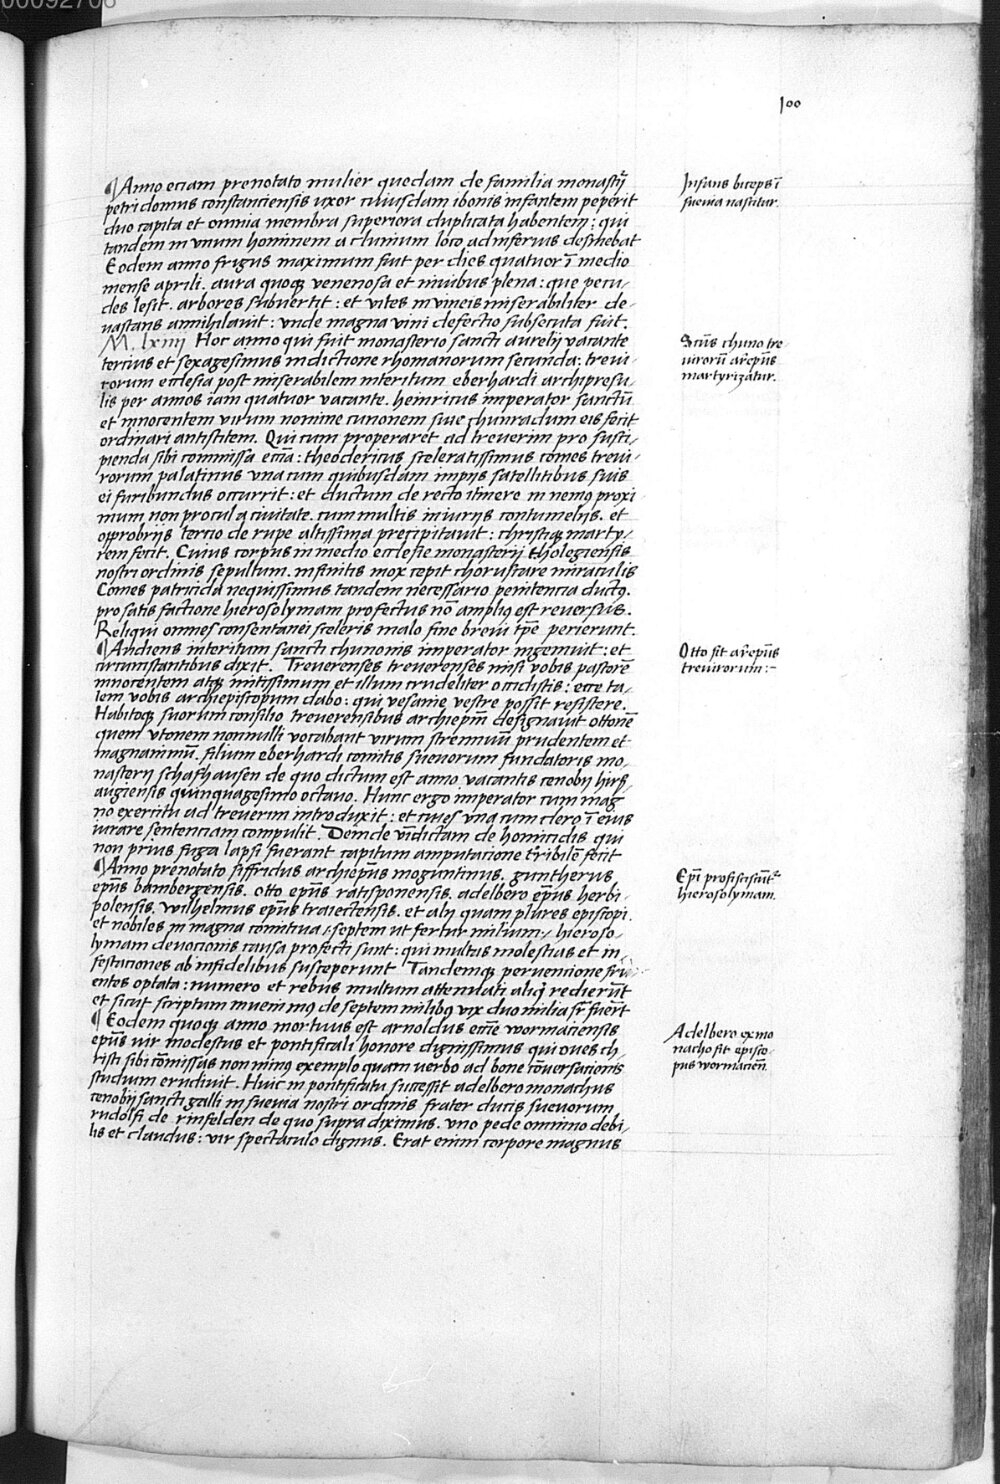 100
¶ Anno etiam prenotato mulier quedam de familia monastij
petri domus constanciensis uxor cuiusdam ibonis infantem peperit
duo capita et omnia membra superiora duplicata habentem: qui
tandem in unum hominem a clunium loco ad inferius desinebat
Eodem anno frigus maximum fuit per dies quatuor ī medio
mense aprili. aura quoqꝫ venenosa et nivibus plena: que pecu-
des lesit. arbores subvertit: et vites in vineis miserabiliter de-
vastans annihilavit: unde magna vini defectio subsecuta fuit.
Infans biceps ī
suevia nascitur.
M. lxiiij Hoc anno qui fuit monasterio sancti aurelij vacante
tercius et sexagesimus indictione rhomanorum secunda: trevi-
rorum ecclesia post miserabilem interitum eberhardi archipresu-
lis per annos iam quatuor vacante. heinricus imperator sanctū
et innocentem virum nomine cunonem sive chunradum eis fecit
ordinari antistitem. Qui cum properaret ad treverim pro susci-
pienda sibi commissa eccīa: theodericus sceleratissimus comes trevi-
rorum palatinus una cum quibusdam impijs satellitibus suis
ei furibundus occurrit: et ductum de recto itinere in nemꝰ proxi
mum non procul a civitate. cum multis iniurijs contumelijs. et
opprobrijs tercio de rupe altissima precipitavit: christiqꝫ marty-
rem fecit. Cuius corpus in medio ecclesie monasterij tholegiensis
nostri ordinis sepultum. infinitis mox cepit choruscare miraculis
Comes patricida nequissimus tandem necessario penitencia ductꝰ.
pro satisfactione hierosolymam profectus nō ampliꝰ est reversus.
Reliqui omnes consentanei sceleris malo fine brevi tp̄e perierunt.
Scūs chuno tre-
virorū arēpūs
martyrizatur.
¶ Audiens interitum sancti chunonis imperator ingemuit: et
circumstantibus dixit. Treverenses treverenses misi vobis pastorē
innocentem atqꝫ mitissimum et illum crudeliter occidistis: ecce ta-
lem vobis archiepiscopum dabo: qui vesanie vestre possit resistere.
Habitoqꝫ suorum consilio treverensibus archiepm̄ designavit ottonē
quem utonem nonnulli vocabant virum strennuū prudentem et
magnanimū. filium eberhardi comitis suevorum fundatoris mo-
nasterij schafhausen de quo dictum est anno vacantis cenobij hirs
augiensis quinquagesimo octavo. Hunc ergo imperator cum mag
no exercitu ad treverim introduxit: et cives una cum clero ī eius
iurare sentenciam compulit. Deinde vīdictam de homicidis qui
non prius fuga lapsi fuerant capitum amputacione t̄ribilē fecit
Otto fit arēpūs
trevirorum:-
¶ Anno prenotato siffridus archiepūs moguntinus. guntherus
epūs bambergensis. otto epūs ratisponensis. adelbero epūs herbi-
polensis. wilhelmus epūs traiectensis. et alij quam plures episcopi.
et nobiles in magna comitiva: septem ut fertur milium: hieroso-
lymam devocionis causa profecti sunt: qui multas molestias et in-
festaciones ab infidelibus susceperunt Tandemqꝫ pervencione
entes optata: numero et rebus multum attenuati aliqī redierūt
et sicut scriptum invenimꝰ de septem milibꝰ vix duo milia
Ep̄i proficiscūt̄
hierosolymam.
¶ Eodem quoqꝫ anno mortuus est arnoldus eccīe wormaciensis
epūs vir modestus et pontificali honore dignissimus qui oves ch-
risti sibi cōmissas non minꝰ exemplo quam verbo ad bone cōversacionis
studium erudivit. Huic in pontificatu successit adelbero monachus
cenobij sancti galli in suevia nostri ordinis frater ducis suevorum
rudolfi de rinfelden de quo supra diximus. uno pede omnino debi-
lis et claudus: vir spectaculo dignus. Erat enim corpore magnus
Adelbero ex mo
nacho fit episco-
pus wormacieñ.